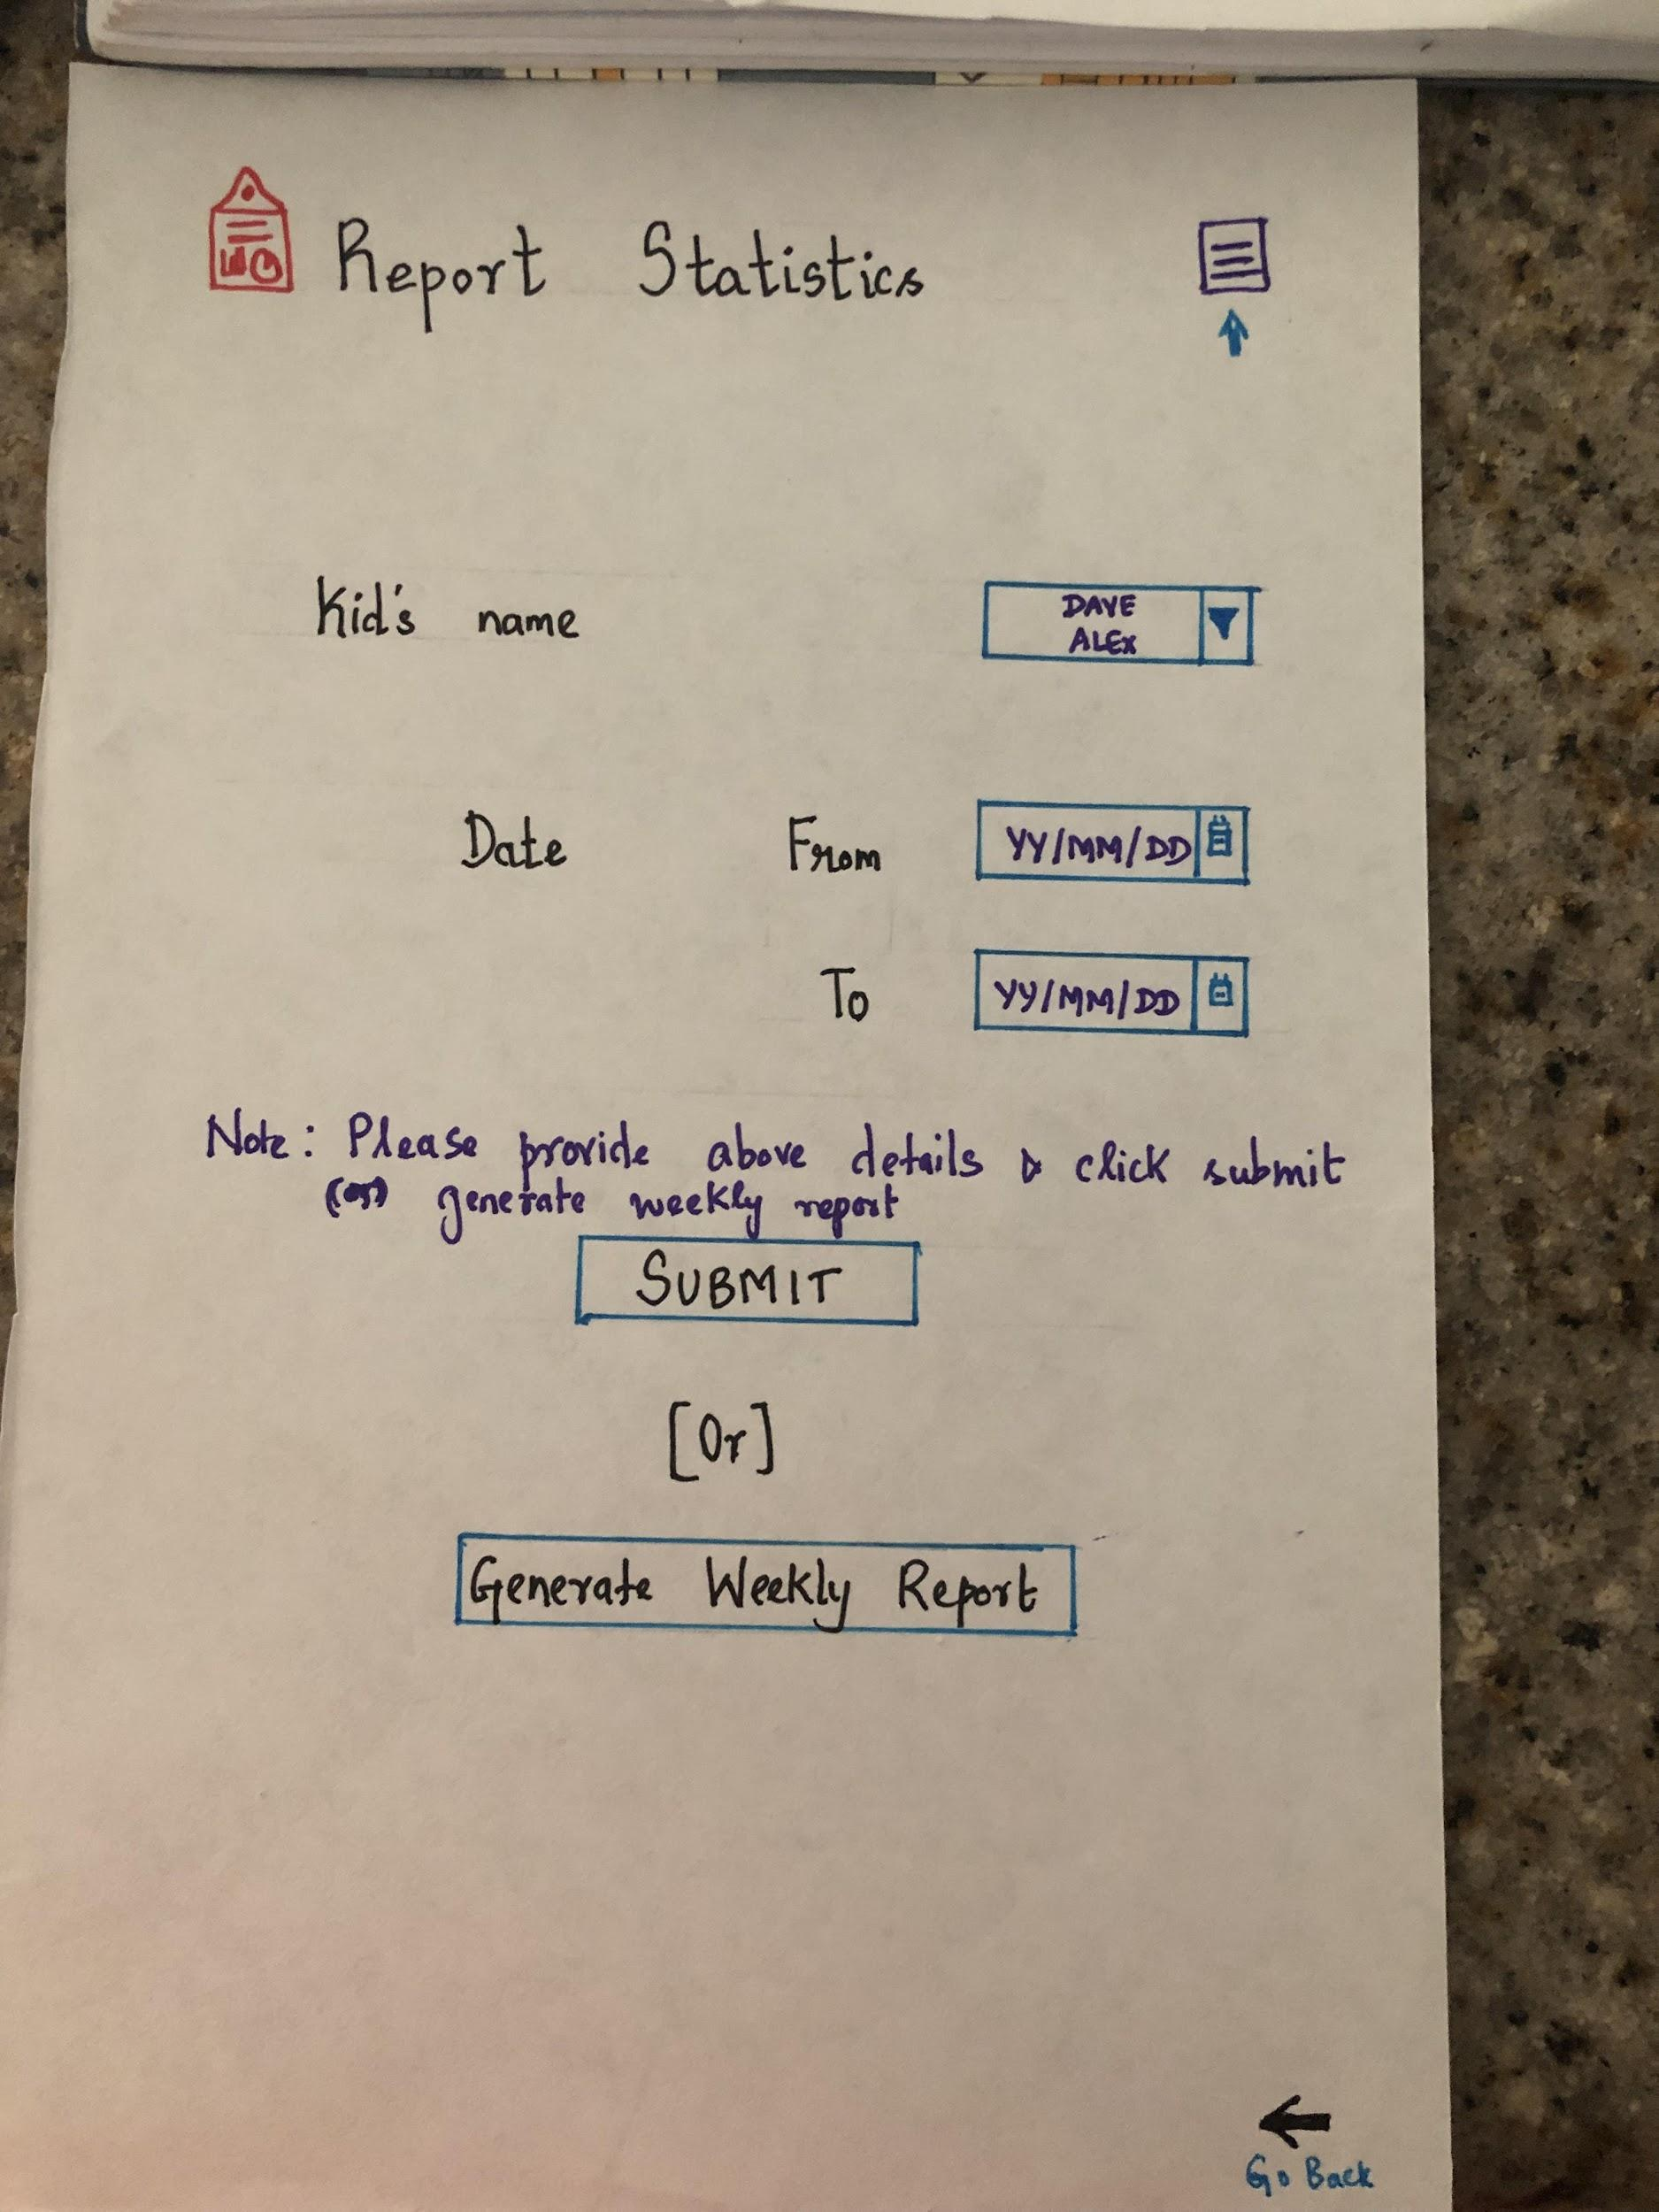 Report Statistics
Kid's name
DAVE
ALEX
Date From YY/MM/DD
To YY/MM/DD
Note: Please provide above details & click submit
(or) generate weekly report
SUBMIT
[Or]
Generate Weekly Report
Go Back